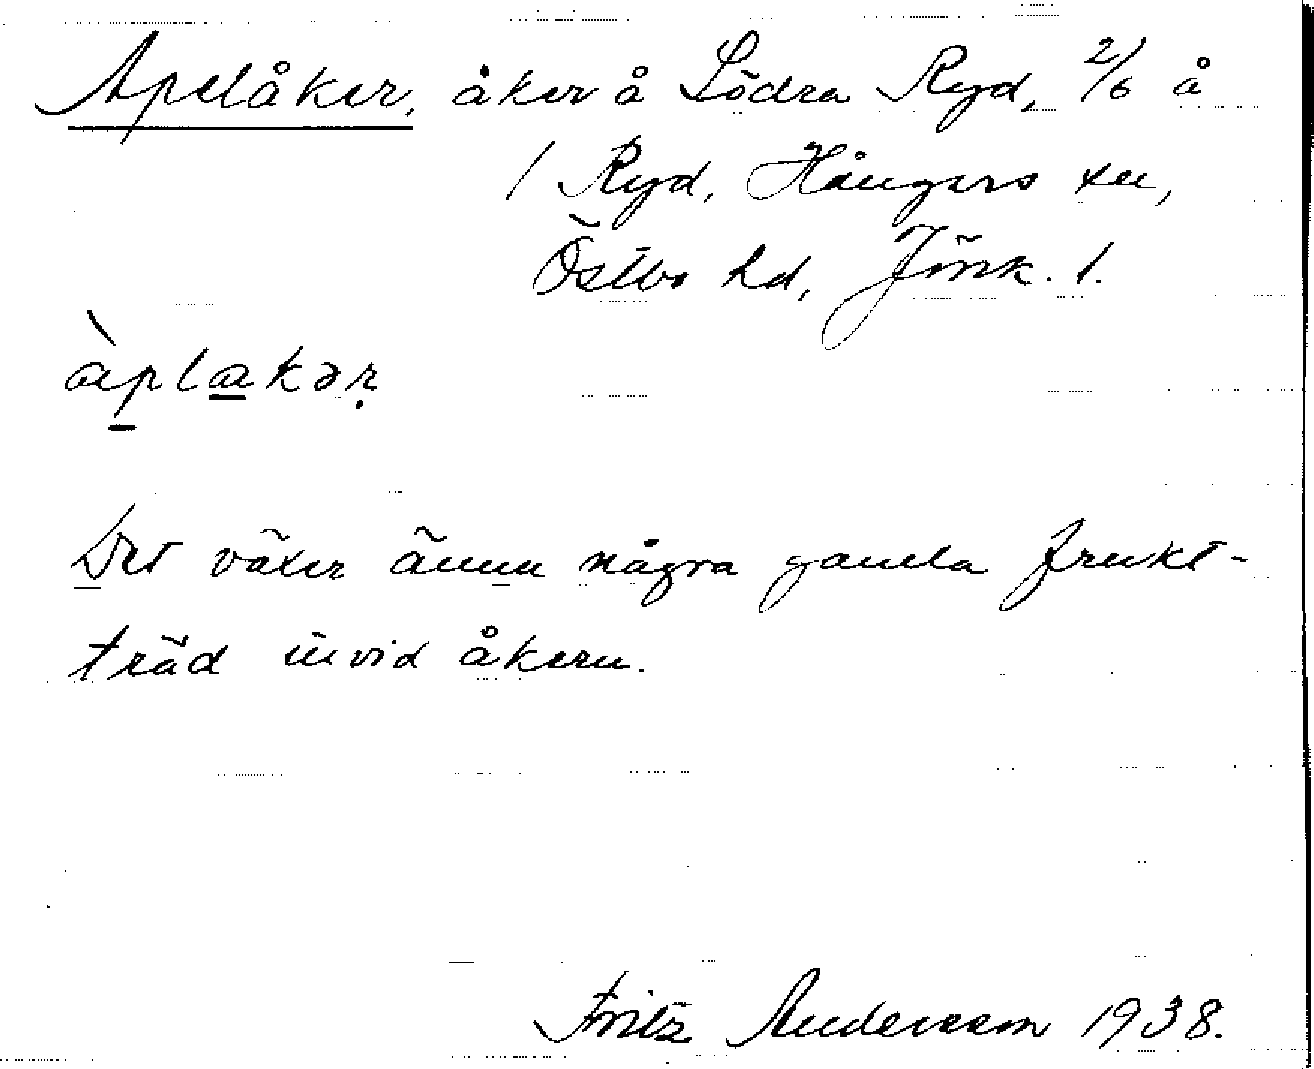 Apelåker, åker å Södra Ryd, 2/6 å
1 Ryd, Hångers sn,
Östbo hd, Jönk. l.
àplakər
Det växer ännu några gamla frukt-
träd invid åkern.
Fritz Andersson 1938.